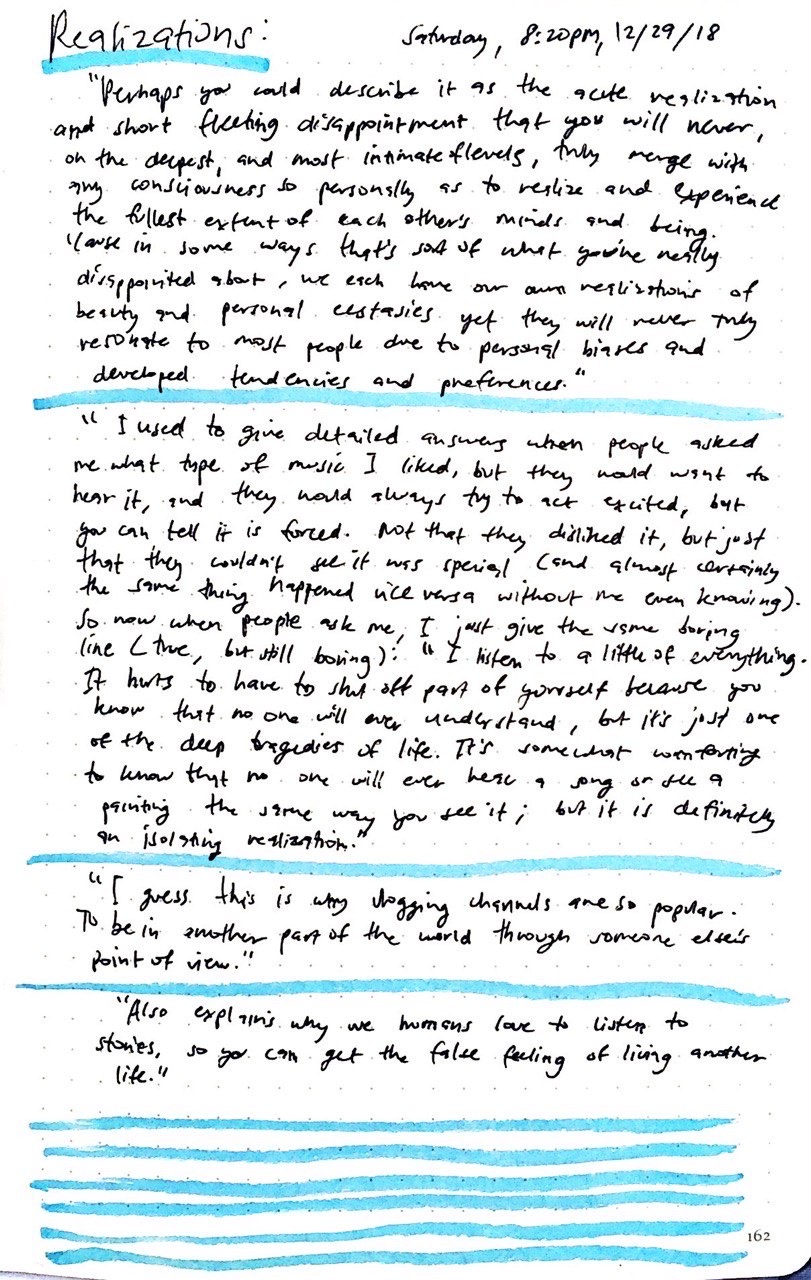 Realizations:
Saturday, 8:20pm, 12/29/18
"Perhaps you could describe it as the acute realization
and short fleeting disappointment that you will never,
on the deepest, and most intimate of levels, truly merge with
any consciousness so personally as to realize and experience
the fullest extent of each other's minds and being.
'Cause in some ways that's sort of what you're really
disappointed about, we each have our own realizations of
beauty and personal ecstasies yet they will never truly
resonate to most people due to personal biases and
developed tendencies and preferences."
"I used to give detailed answers when people asked
me what type of music I liked, but they would want to
hear it, and they would always try to act excited, but
you can tell it is forced. Not that they disliked it, but just
that they couldn't see it was special (and almost certainly
the same thing happened vice versa without me even knowing).
So now when people ask me, I just give the same boring
line (true, but still boring): "I listen to a little of everything.
It hurts to have to shut off part of yourself because you
know that no one will ever understand, but it's just one
of the deep tragedies of life. It's somewhat comforting
to know that no one will ever hear a song or see a
painting the same way you see it; but it is definitely
an isolating realization."
"I guess this is why vlogging channels are so popular.
To be in another part of the world through someone else's
point of view."
"Also explains why we humans love to listen to
stories, so you can get the false feeling of living another
life."
162